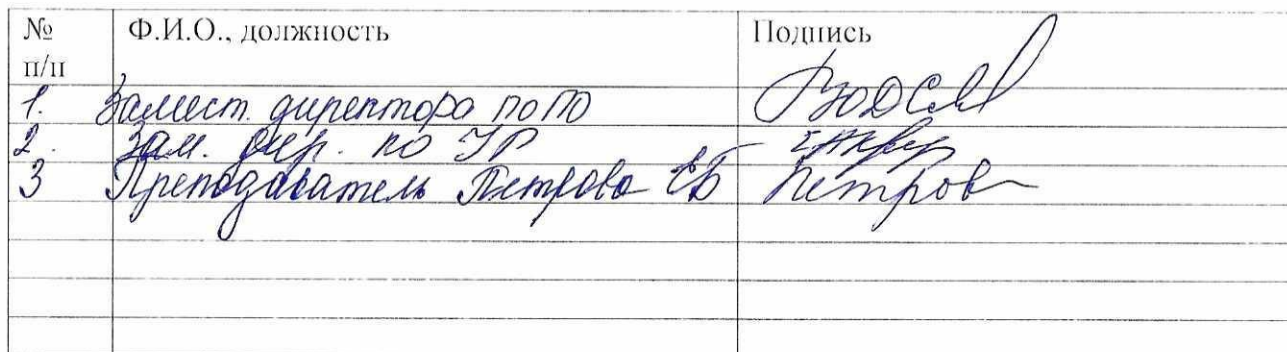 № п/п Ф.И.О., должность Подпись
1. Замест. директора по ПО
2. Зам. дир. по УР
3 Преподаватель Петрова ЕБ Петров